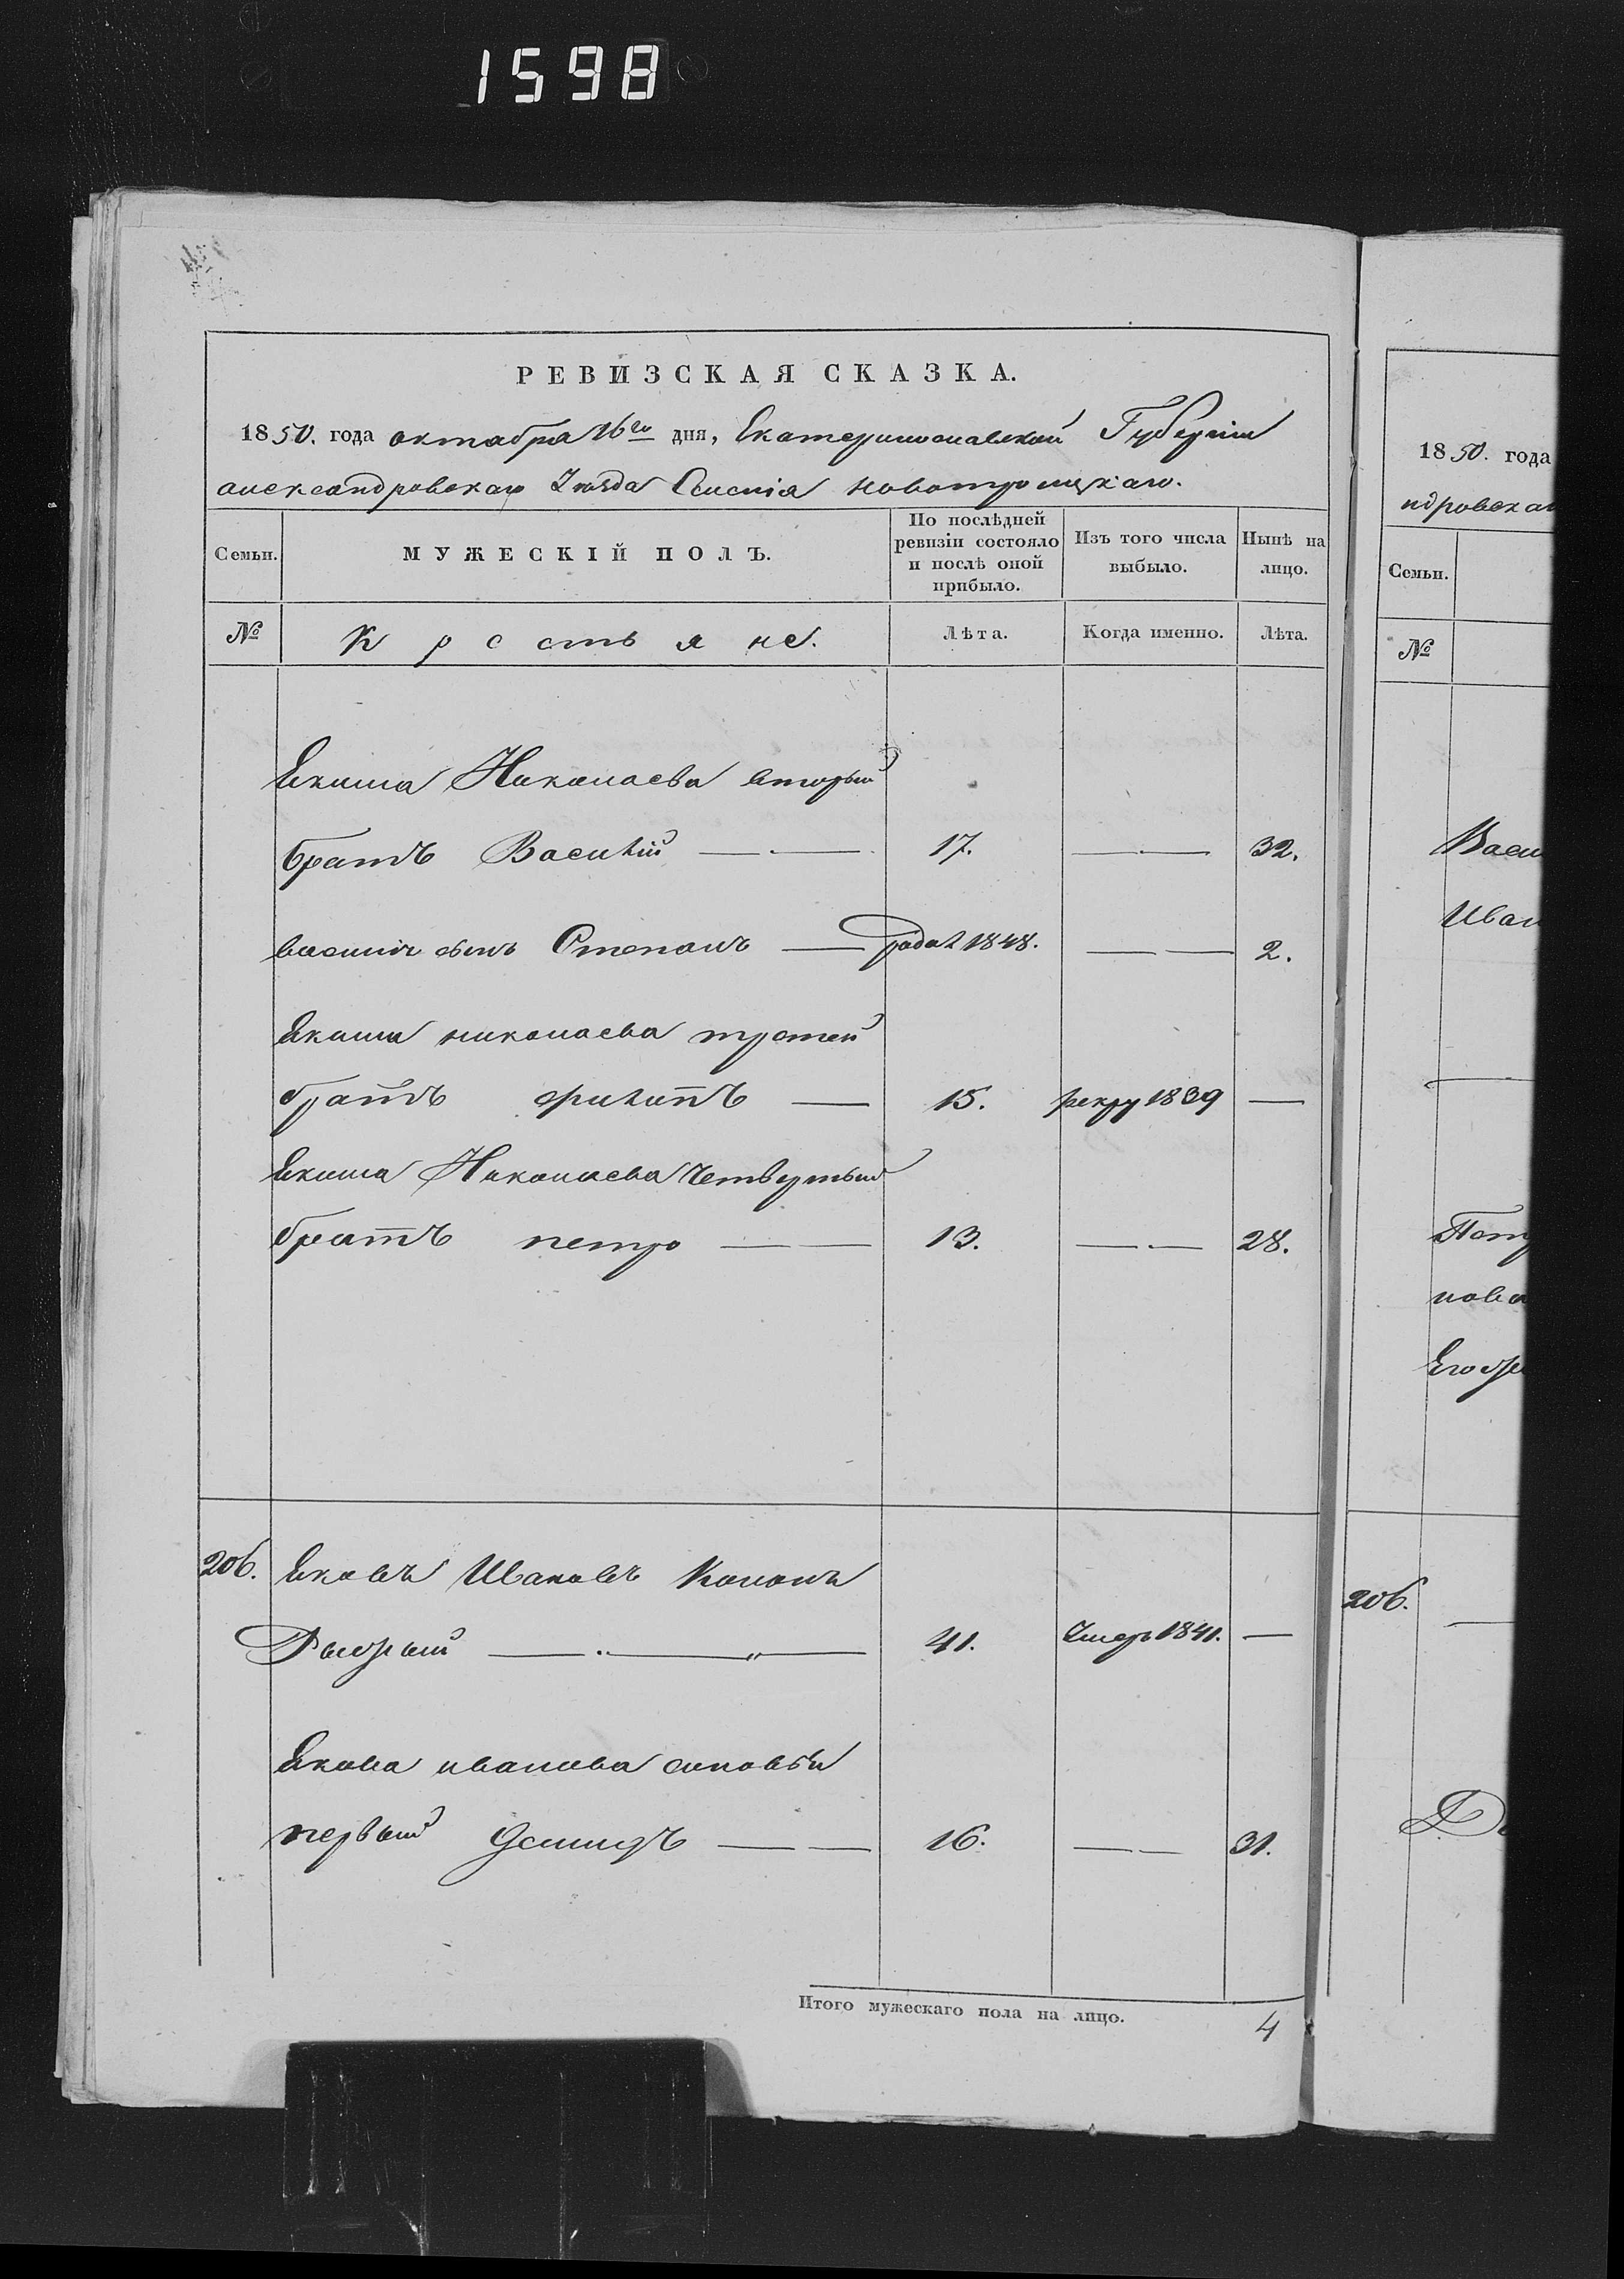 1598
РЕВИЗСКАЯ СКАЗКА.
1850. года октября 16го дня, Екатеринославской Губернии
александровскаго Уезда Селенія новотроицкаго.
Семьи.
МУЖЕСКІЙ ПОЛЪ.
По послѣдней ревизіи состояло и послѣ оной прибыло.
Изъ того числа выбыло.
Нынѣ на лицо.
№
Крестьяне.
Лѣта.
Когда именно.
Лѣта.
Екима Николаева вторый
братъ Василій 17. 32.
василія сынъ Степанъ родил 1848. 2.
Екима николаева третей
братъ филипъ 15. рекру 1839
Екима Николаева четвертый
братъ петро 13. 28.
206. Яковъ Ивановъ
41. Умеръ 1841.
Якова иванова сыновъя
первый Демидъ 16. 31.
Итого мужескаго пола на лицо. 4
1850. года
ндровскаг
Семьи.
№
Васи
Иван
Петр
нова
Его
206.